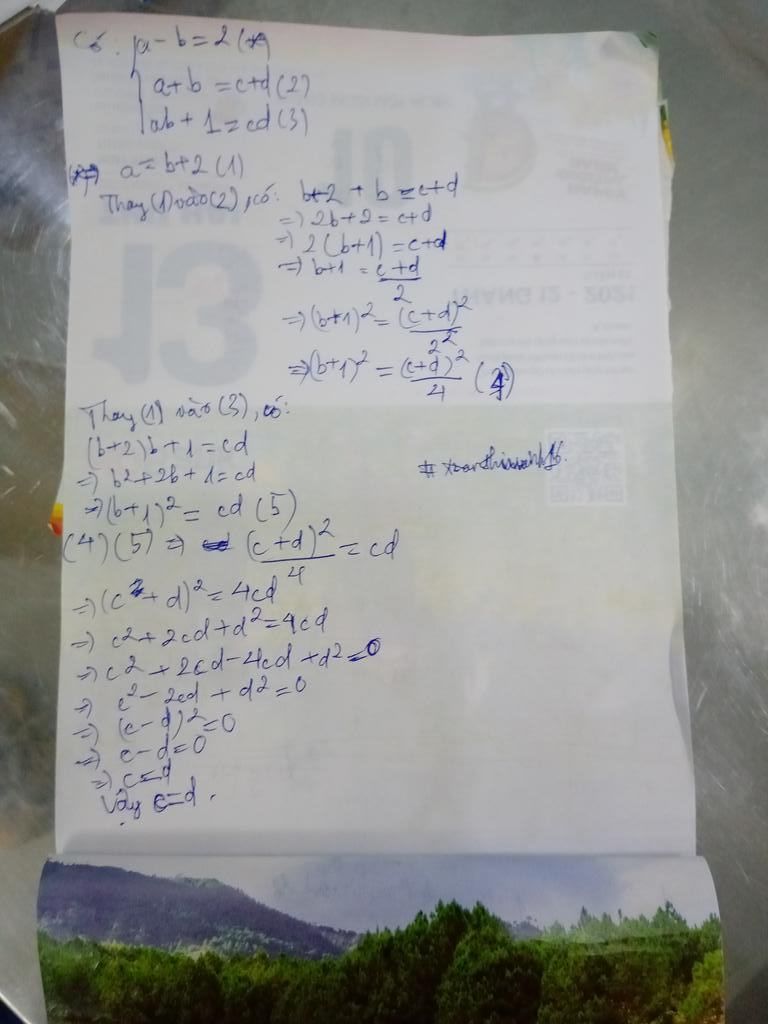 Có: a - b = 2 (*)
a + b = c + d (2)
ab + 1 = cd (3)
a = b + 2 (1)
Thay (1) vào (2), có: b + 2 + b = c + d
=> 2b + 2 = c + d
=> 2(b + 1) = c + d
=> b + 1 = (c + d)/2
=> (b + 1)² = (c + d)²/2²
=> (b + 1)² = (c + d)²/4 (4)
Thay (1) vào (3), có:
(b + 2)b + 1 = cd
=> b² + 2b + 1 = cd
=> (b + 1)² = cd (5)
(4)(5) => (c + d)²/4 = cd
=> (c + d)² = 4cd
=> c² + 2cd + d² = 4cd
=> c² + 2cd - 4cd + d² = 0
=> c² - 2cd + d² = 0
=> (c - d)² = 0
=> c - d = 0
=> c = d
Vậy c = d.
13
THÁNG 12 - 2021